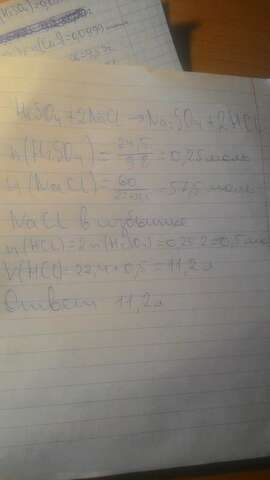 H2SO4+2NaCl→Na2SO4+2HCl
n(H2SO4)=24,5/98=0,25 моль
n(NaCl)=60/ 57,5 моль
NaCl в избытке
n(HCl)=2n(H2SO4)=0,25·2=0,5 моль
V(HCl)=22,4·0,5=11,2л
Ответ: 11,2л